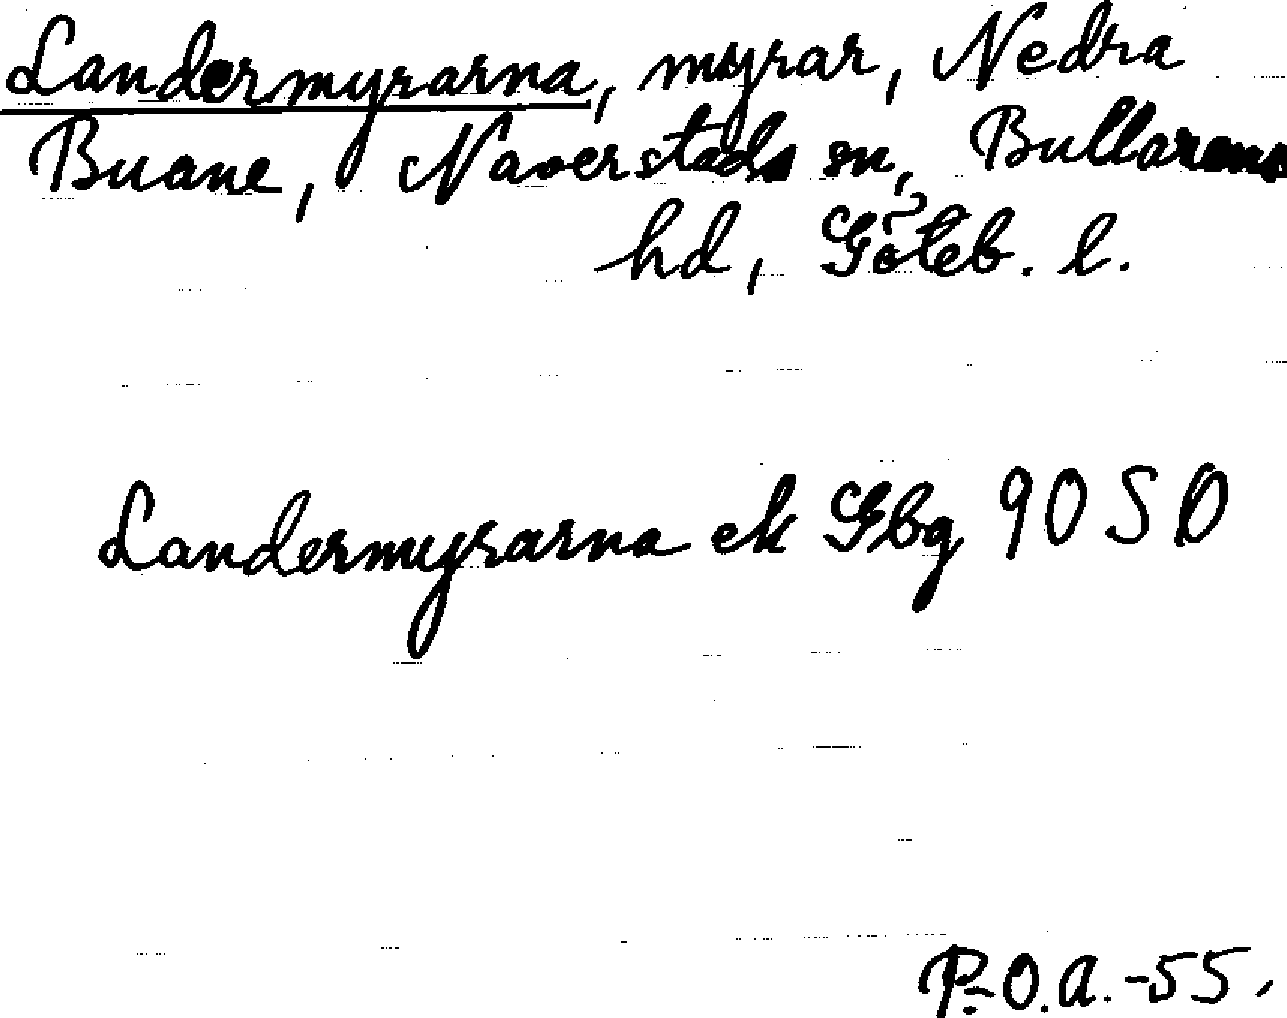 Landermyrarna, myrar, Nedra
Buane, Naverstads sn, Bullarens
hd, Göteb. l.
Landermyrarna ek Gbg 90 SO
P.O.A.-55.